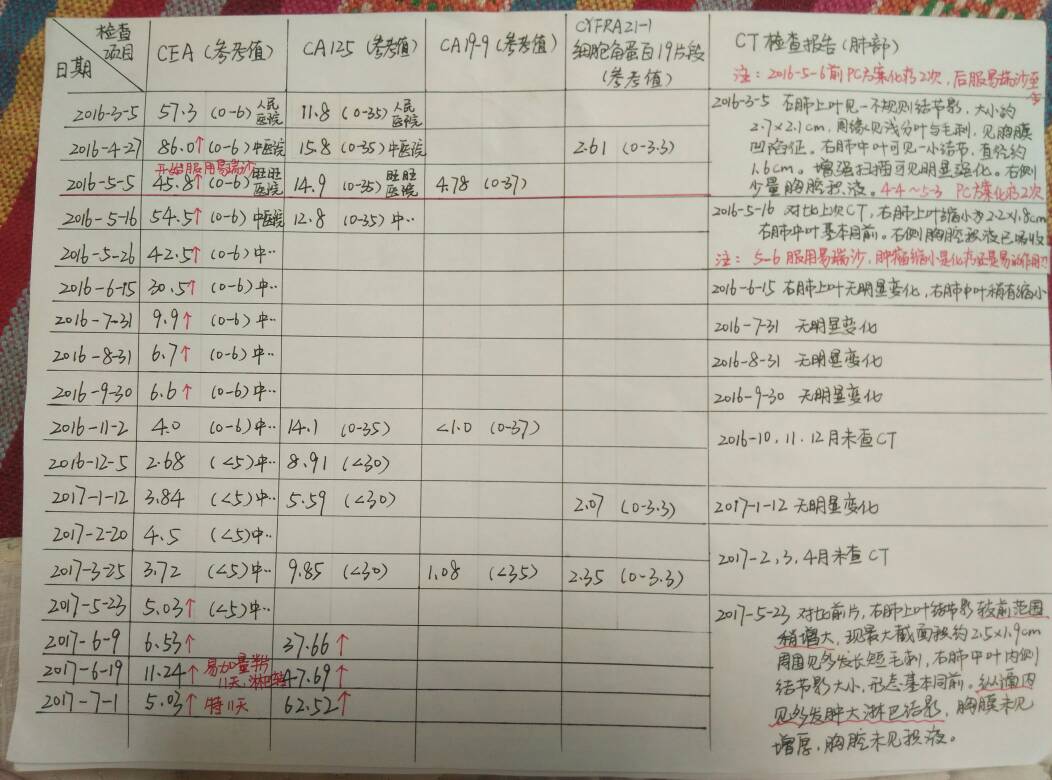 检查项目
日期
CEA (参考值)
CA125 (参考值)
CA19-9 (参考值)
CYFRA21-1
细胞角蛋白19片段
(参考值)
CT检查报告 (肺部)
注: 2016-5-6前PC方案化疗2次, 后服易瑞沙至今
2016-3-5 57.3 (0-6) 人民医院 11.8 (0-35) 人民医院
2016-4-27 86.0↑ (0-6) 中医院 15.8 (0-35) 中医院 2.61 (0-3.3)
开始服用易瑞沙
2016-5-5 45.8↑ (0-6) 旺旺医院 14.9 (0-35) 旺旺医院 4.78 (0-37)
2016-3-5 右肺上叶见一不规则结节影, 大小约
2.7×2.1cm, 周缘见浅分叶与毛刺, 见胸膜
凹陷征。右肺中叶可见一小结节, 直径约
1.6cm。增强扫描可见明显强化。右侧
少量胸腔积液。4-4~5-3 PC方案化疗2次
2016-5-16 54.5↑ (0-6) 中医院 12.8 (0-35) 中··
2016-5-26 42.5↑ (0-6) 中··
2016-5-16 对比上次CT, 右肺上叶缩小为2.2×1.8cm
右肺中叶基本同前。右侧胸腔积液已吸收
注: 5-6服用易瑞沙, 肿瘤缩小是化疗还是易的作用?
2016-6-15 30.5↑ (0-6) 中·· 2016-6-15 右肺上叶无明显变化, 右肺中叶稍有缩小
2016-7-31 9.9↑ (0-6) 中·· 2016-7-31 无明显变化
2016-8-31 6.7↑ (0-6) 中·· 2016-8-31 无明显变化
2016-9-30 6.6↑ (0-6) 中·· 2016-9-30 无明显变化
2016-11-2 4.0 (0-6) 中·· 14.1 (0-35) <1.0 (0-37)
2016-10, 11, 12月未查CT
2016-12-5 2.68 (<5) 中·· 8.91 (<30)
2017-1-12 3.84 (<5) 中·· 5.59 (<30) 2.07 (0-3.3) 2017-1-12 无明显变化
2017-2-20 4.5 (<5) 中··
2017-2, 3, 4月未查CT
2017-3-25 3.72 (<5) 中·· 9.85 (<30) 1.08 (<35) 2.35 (0-3.3)
2017-5-23 5.03↑ (<5) 中··
2017-6-9 6.53↑ 37.66↑
2017-6-19 11.24↑ 易 量 11天, 47.69↑
2017-7-1 5.03↑ 特11天 62.52↑
2017-5-23 对比前片, 右肺上叶结节影较前范围
稍增大, 现最大截面积约2.5×1.9cm
周围见多发长短毛刺, 右肺中叶内侧
结节影大小, 形态基本同前。纵膈内
见多发肿大淋巴结影, 胸膜未见
增厚, 胸腔未见积液。